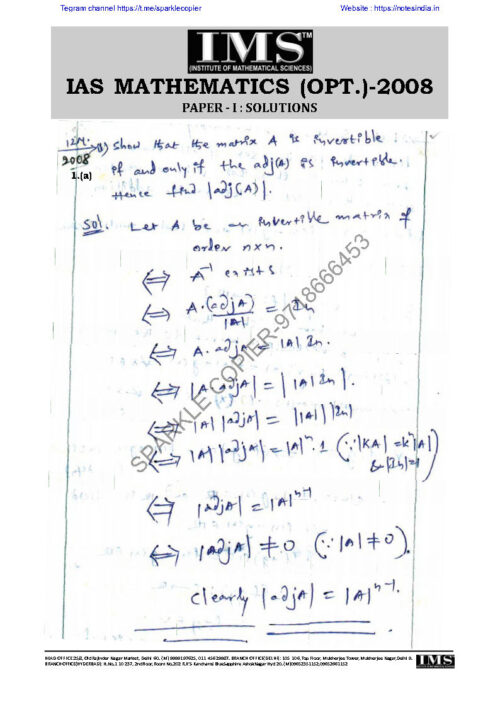 Tegram channel https://t.me/sparklecopier
Website : https://notesindia.in
IMS™
(INSTITUTE OF MATHEMATICAL SCIENCES)
IAS MATHEMATICS (OPT.)-2008
PAPER - I : SOLUTIONS
12M. (1) Show that the matrix A is invertible
2008
1.(a)
if and only if the adj(A) is invertible.
Hence find |adj(A)|.
Sol. Let A be an invertible matrix of
order n×n.
⇔ A⁻¹ exists
⇔ A.(adjA)/|A| = In
⇔ A.adjA = |A| In.
⇔ |A.adjA| = ||A| In|.
⇔ |A| |adjA| = ||A|| |In|
⇔ |A| |adjA| = |A|ⁿ.1 (∵ |KA| = kⁿ|A|
& |In|=1)
⇔ |adjA| = |A|ⁿ⁻¹
⇔ |adjA| ≠ 0 (∵ |A| ≠ 0).
Clearly |adjA| = |A|ⁿ⁻¹.
SPARKLE COPIER-9718666453
IMS